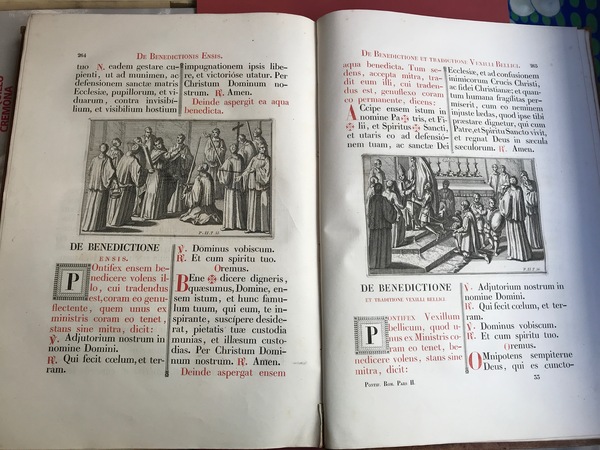 LLO
CREMONA
264
De Benedictionis Ensis.
tuo N. eadem gestare cu-
pienti, ut ad munimen, ac
defensionem sanctæ matris
Ecclesiæ, pupillorum, et vi-
duarum, contra invisibi-
lium, et visibilium hostium
impugnationem ipsis libe-
re, et victorióse utatur. Per
Christum Dominum no-
strum. ℟. Amen.
Deinde aspergit ea aqua
benedicta.
P. II. T. 15
DE BENEDICTIONE
ENSIS.
POntifex ensem be-
nedicere volens il-
lo, cui tradendus
est, coram eo genu-
flectente, quem unus ex
ministris coram eo tenet,
stans sine mitra, dicit:
℣. Adjutorium nostrum in
nomine Domini.
℟. Qui fecit cœlum, et ter-
ram.
℣. Dominus vobiscum.
℟. Et cum spiritu tuo.
Oremus.
BEne ✠ dicere digneris,
quæsumus, Domine, en-
sem istum, et hunc famu-
lum tuum, qui eum, te in-
spirante, suscípere deside-
rat, pietatis tuæ custodia
munias, et illæsum custo-
dias. Per Christum Domi-
num nostrum. ℟. Amen.
Deinde aspergat ensem
De Benedictione et traditione Vexilli Bellici. 265
aqua benedicta. Tum se-
dens, accepta mitra, tra-
dit eum illi, cui traden-
dus est, genuflexo coram
eo permanente, dicens:
ACcipe ensem istum in
nomine Pa ✠ tris, et Fi-
✠ lii, et Spiritus ✠ Sancti,
et utaris eo ad defensió-
nem tuam, ac sanctæ Dei
Ecclesiæ, et ad confusionem
inimicorum Crucis Christi,
ac fidei Christianæ; et quan-
tum humana fragilitas per-
miserit, cum eo neminem
injuste lædas, quod ipse tibi
præstare dignetur, qui cum
Patre, et Spiritu Sancto vivit,
et regnat Deus in sæcula
sæculorum. ℟. Amen.
DE BENEDICTIONE
ET TRADITIONE VEXILLI BELLICI.
PONTIFEX Vexillum
bellicum, quod u-
nus ex Ministris co-
ram eo tenet, be-
nedicere volens, stans sine
mitra, dicit:
℣. Adjutorium nostrum in
nomine Domini.
℟. Qui fecit cœlum, et ter-
ram.
℣. Dominus vobiscum.
℟. Et cum spiritu tuo.
Oremus.
OMnipotens sempiterne
Deus, qui es cuncto-
Pontif. Rom. Pars II.
33